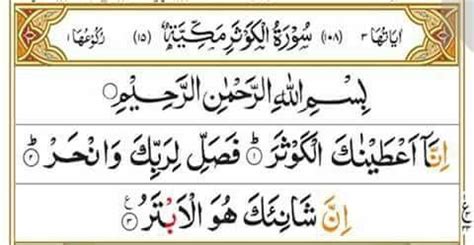 اٰيَاتُهَا ٣ (١٠٨) سُوْرَةُ الْكَوْثَرِ مَكِّيَّةٌ (١٥) رُكُوْعُهَا ١
بِسْمِ اللّٰهِ الرَّحْمٰنِ الرَّحِيْمِ
اِنَّاۤ اَعْطَيْنٰكَ الْكَوْثَرَ ؕ﴿١﴾ فَصَلِّ لِرَبِّكَ وَانْحَرْ ؕ﴿٢﴾
اِنَّ شَانِئَكَ هُوَ الْاَبْتَرُ ﴿٣﴾ ع